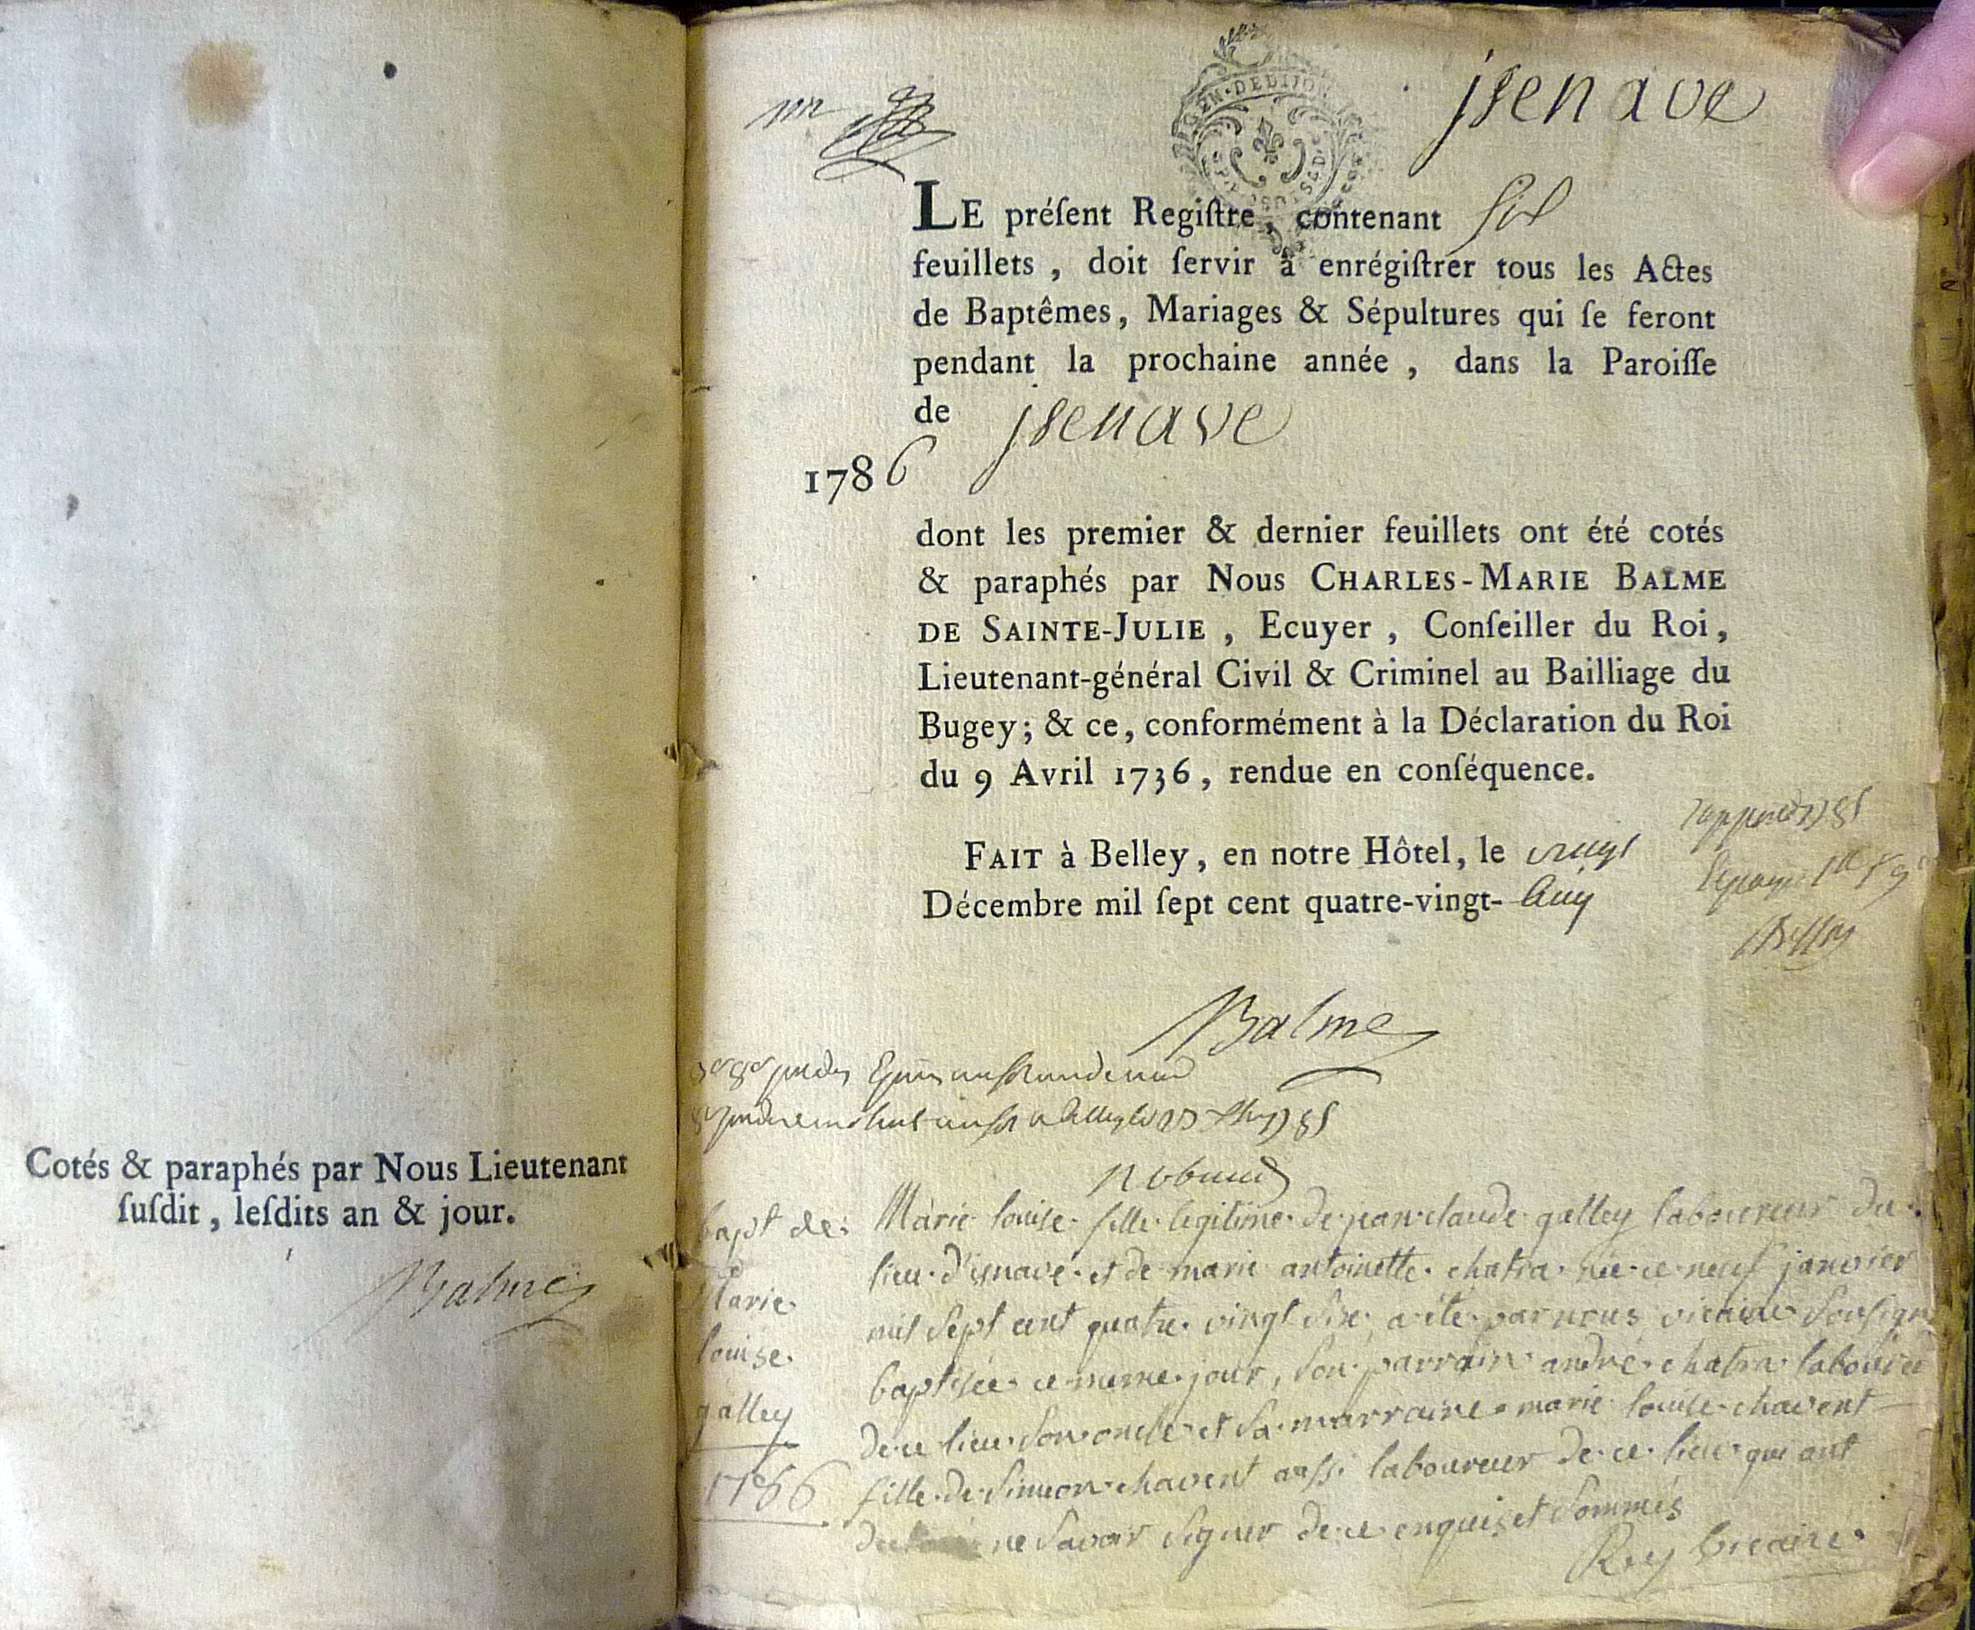 Cotés & paraphés par Nous Lieutenant
ſuſdit, leſdits an & jour.
Balme
GEN · DE DIJON
jsenave
LE préſent Regiſtre, contenant six
feuillets, doit ſervir à enrégiſtrer tous les Actes
de Baptêmes, Mariages & Sépultures qui ſe feront
pendant la prochaine année, dans la Paroiſſe
de jsenave
1786
dont les premier & dernier feuillets ont été cotés
& paraphés par Nous CHARLES-MARIE BALME
DE SAINTE-JULIE, Ecuyer, Conſeiller du Roi,
Lieutenant-général Civil & Criminel au Bailliage du
Bugey; & ce, conformément à la Déclaration du Roi
du 9 Avril 1736, rendue en conſéquence.
FAIT à Belley, en notre Hôtel, le vingt
Décembre mil ſept cent quatre-vingt- cinq
Balme
bapt de
Marie
louise
galley
1786
Marie louise fille legitime de jean claude galley laboureur du
lieu d'isnave et de marie antoinette chatra née ce neuf janvier
mil sept cent quatre vingt six a été par nous vicaire soussigné
baptisée ce meme jour, son parrain andré chatra laboureur
de ce lieu son oncle et sa marraine marie louise chavent
fille de simeon chavent aussi laboureur de ce lieu qui ont
ne savoir signer de ce enquis et sommés
Rey vicaire